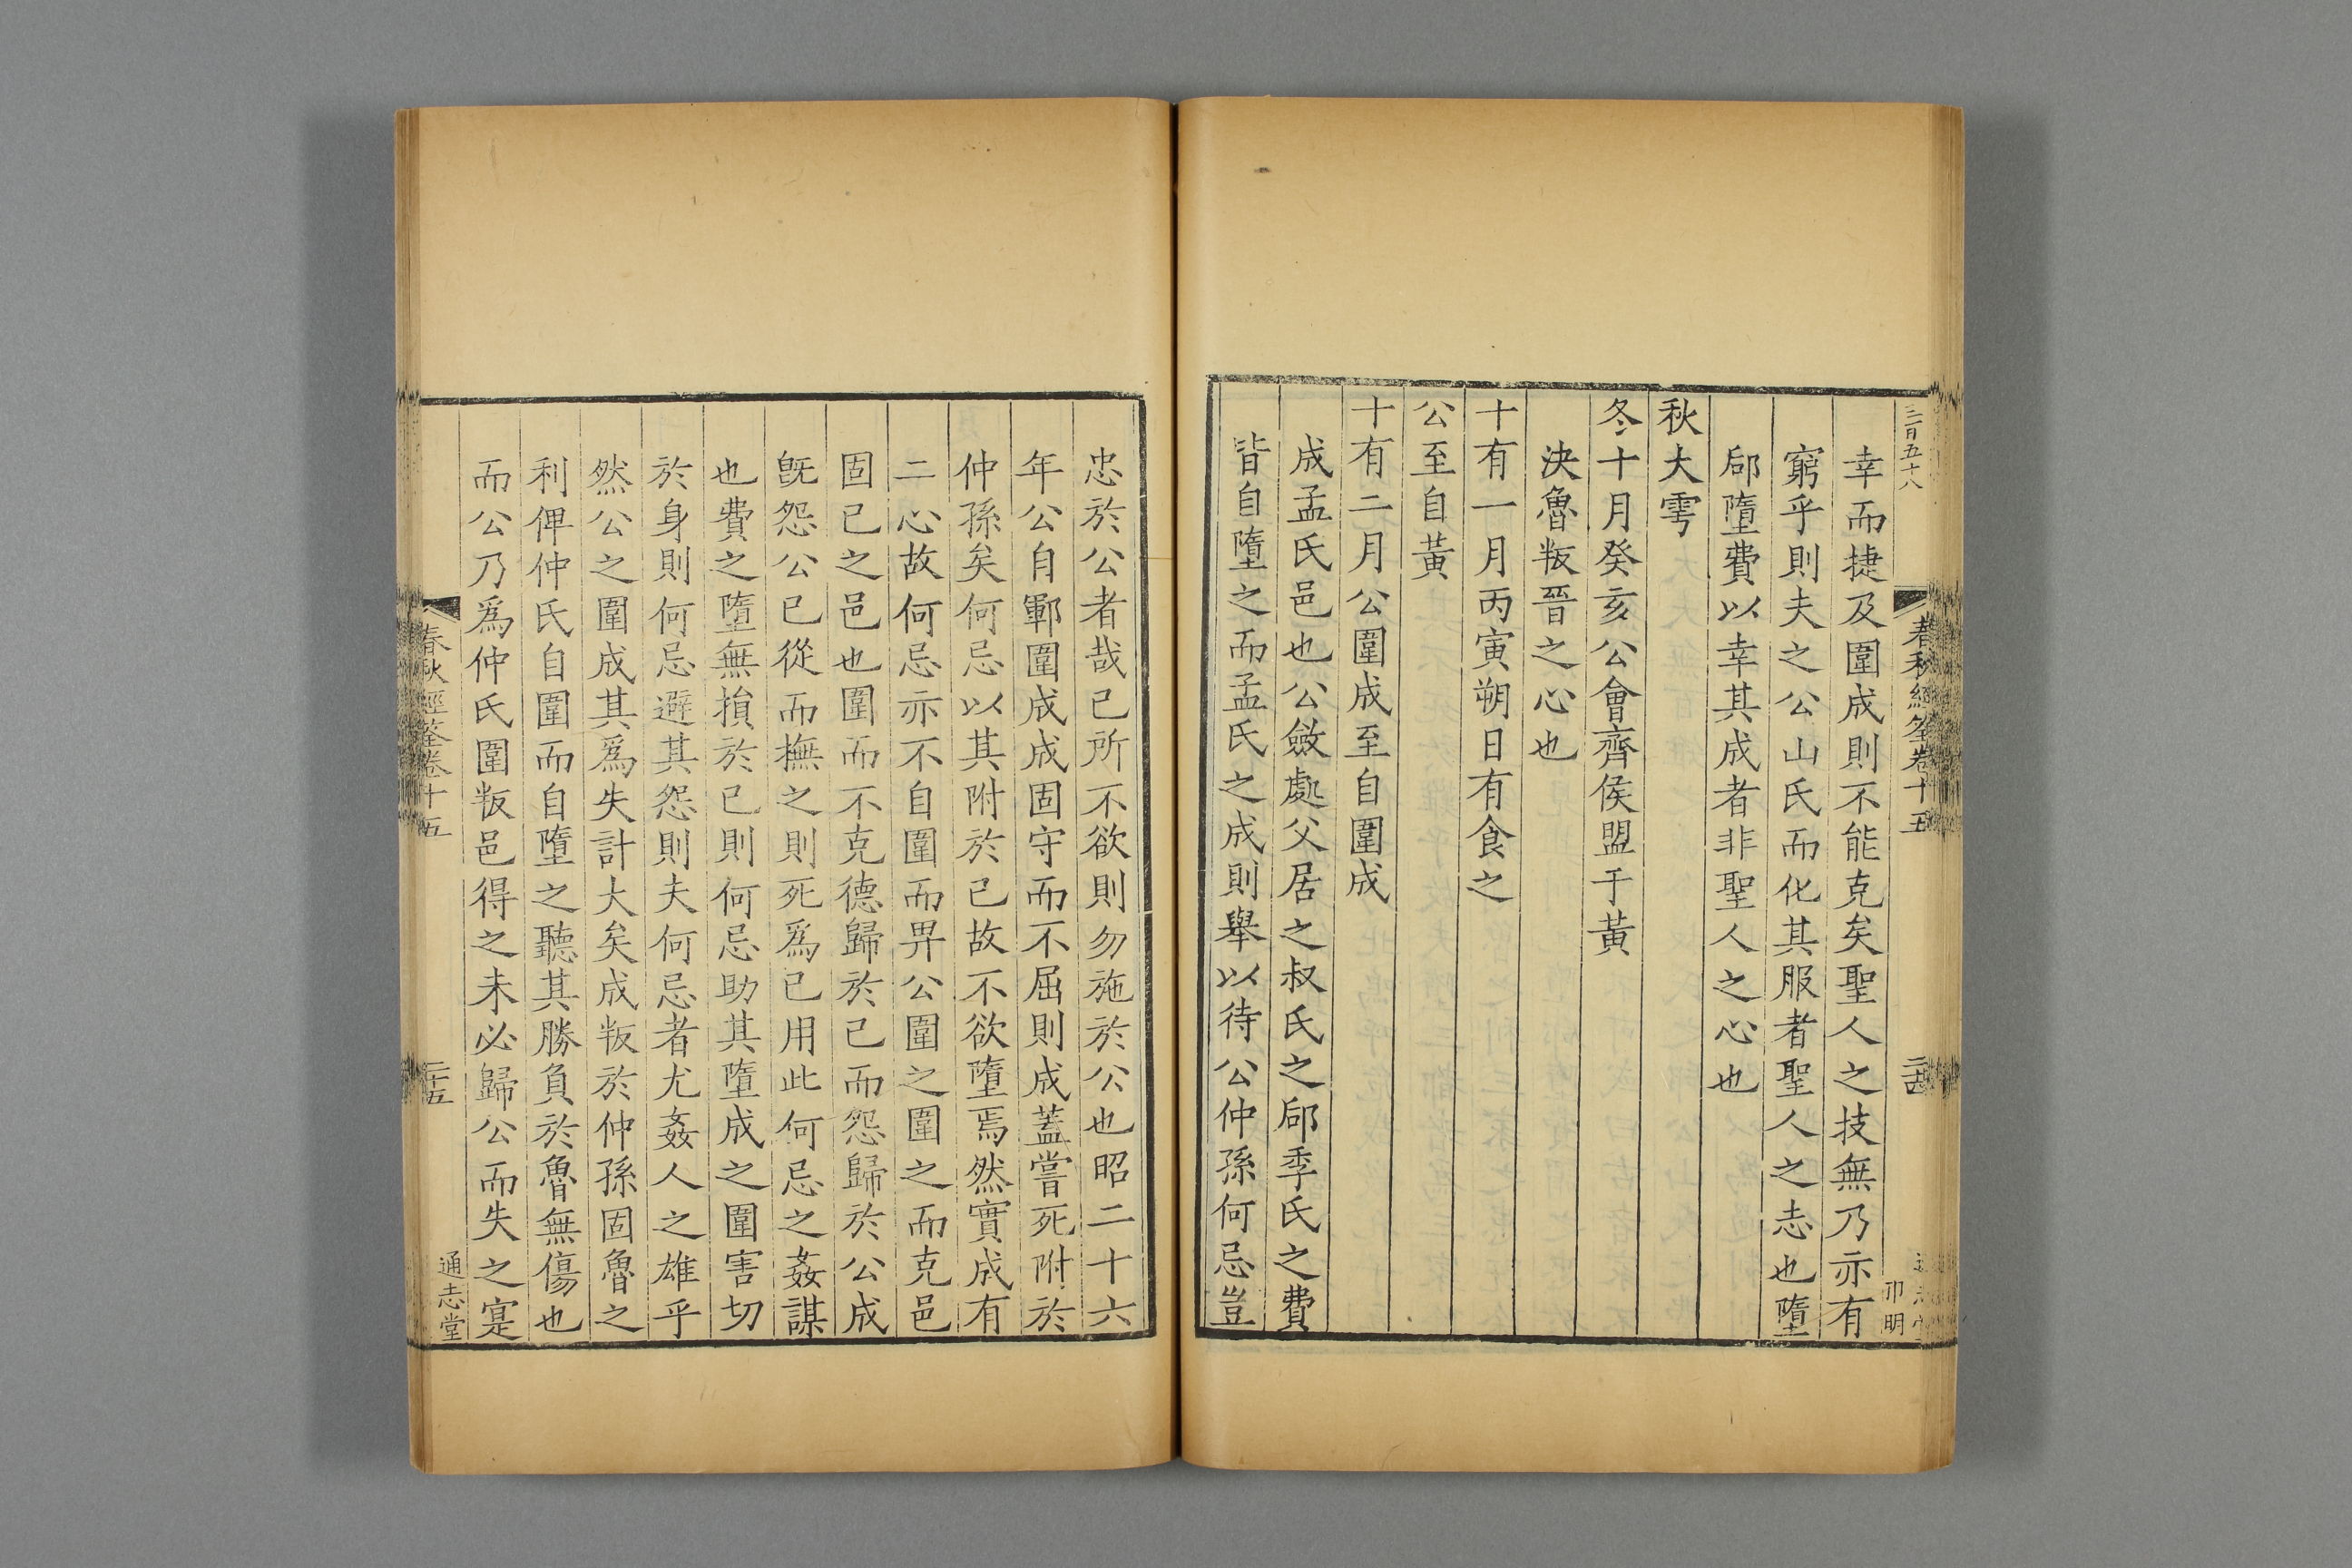 三百五十八
春秋經筌卷十五
二十四
卯明
幸而捷及圍成則不能克矣聖人之技無乃亦有
窮乎則夫之公山氏而化其服者聖人之志也墮
郈墮費以幸其成者非聖人之心也
秋大雩
冬十月癸亥公會齊侯盟于黃
決魯叛晉之心也
十有一月丙寅朔日有食之
公至自黃
十有二月公圍成至自圍成
成孟氏邑也公斂處父居之叔氏之郈季氏之費
皆自墮之而孟氏之成則舉以待公仲孫何忌豈
忠於公者哉己所不欲則勿施於公也昭二十六
年公自鄆圍成成固守而不屈則成蓋嘗死附於
仲孫矣何忌以其附於己故不欲墮焉然實成有
二心故何忌亦不自圍而畀公圍之圍之而克邑
固已之邑也圍而不克德歸於己而怨歸於公成
旣怨公已從而撫之則死爲已用此何忌之姦謀
也費之墮無損於已則何忌助其墮成之圍害切
於身則何忌避其怨則夫何忌者尤姦人之雄乎
然公之圍成其爲失計大矣成叛於仲孫固魯之
利俾仲氏自圍而自墮之聽其勝負於魯無傷也
而公乃爲仲氏圍叛邑得之未必歸公而失之寔
春秋經筌卷十五
二十五
通志堂